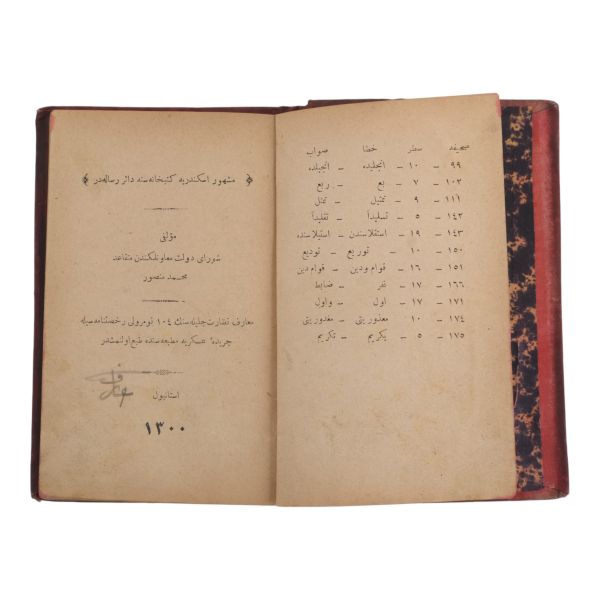 ﴿ مشهور اسكندريه كتبخانه‌سنه دائر رساله‌در ﴾
مؤلفی
شورای دولت معاونلكندن متقاعد
محمد منصور
معارف نظارت جليله‌سنك ١٠٤ نومرولی رخصتنامه‌سيله
جريدهٔ عسكريه مطبعه‌سنده طبع اولنمشدر
استانبول
١٣٠٠
صحيفه سطر خطا صواب
٩٩ – ١٠ – انجليده – انجيلده
١٠٢ – ٧ – بع – ربع
١١١ – ٩ – تمثيل – تمثل
١٤٢ – ٥ – تسليداً – تقليداً
١٤٣ – ١٩ – استقلاسندن – استيلاسنده
١٥٠ – ١٠ – توريع – توديع
١٥١ – ١٦ – قوام ودين – قوام دين
١٦٦ – ١٧ – نفر – ضابط
١٧١ – ١٧ – اول – واول
١٧٤ – ١٠ – معذوريتی – مغدوريتی
١٧٥ – ٥ – يكريم – تكريم